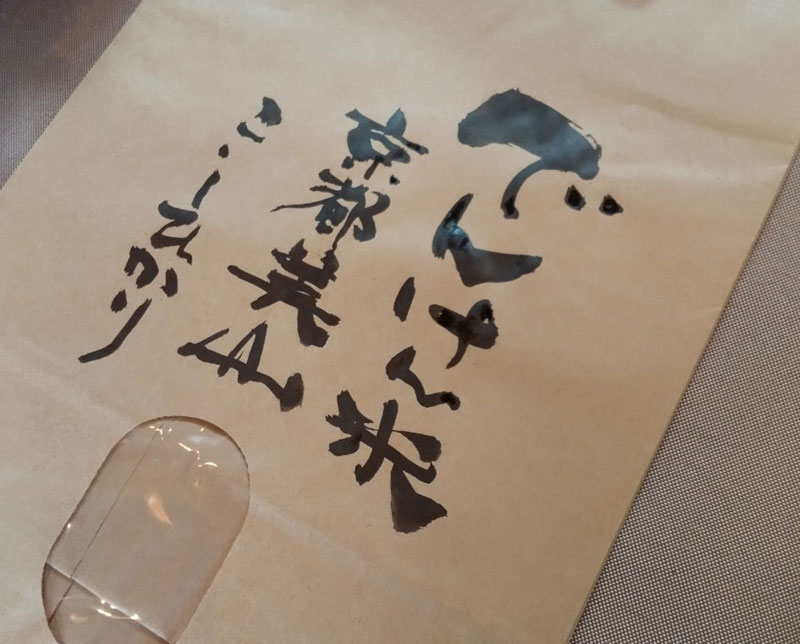 でんけん米
京都美山
こしひかり